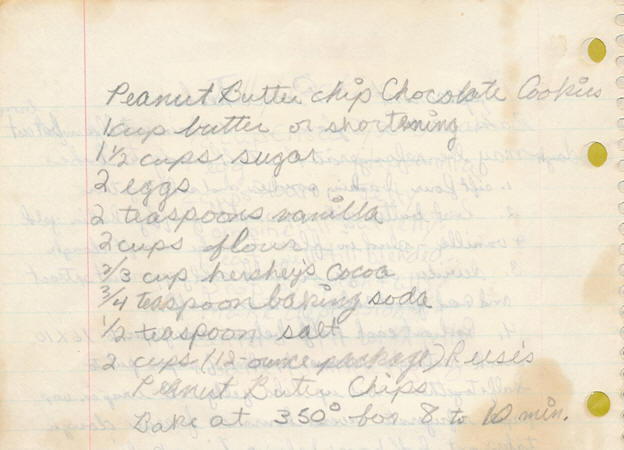 Peanut Butter chip Chocolate Cookies
1 cup butter or shortening
1 1/2 cups sugar
2 eggs
2 teaspoons vanilla
2 cups flour
2/3 cup hershey's cocoa
3/4 teaspoon baking soda
1/2 teaspoon salt
2 cups (12-ounce package) Reese's
Peanut Butter Chips
Bake at 350° for 8 to 10 min.